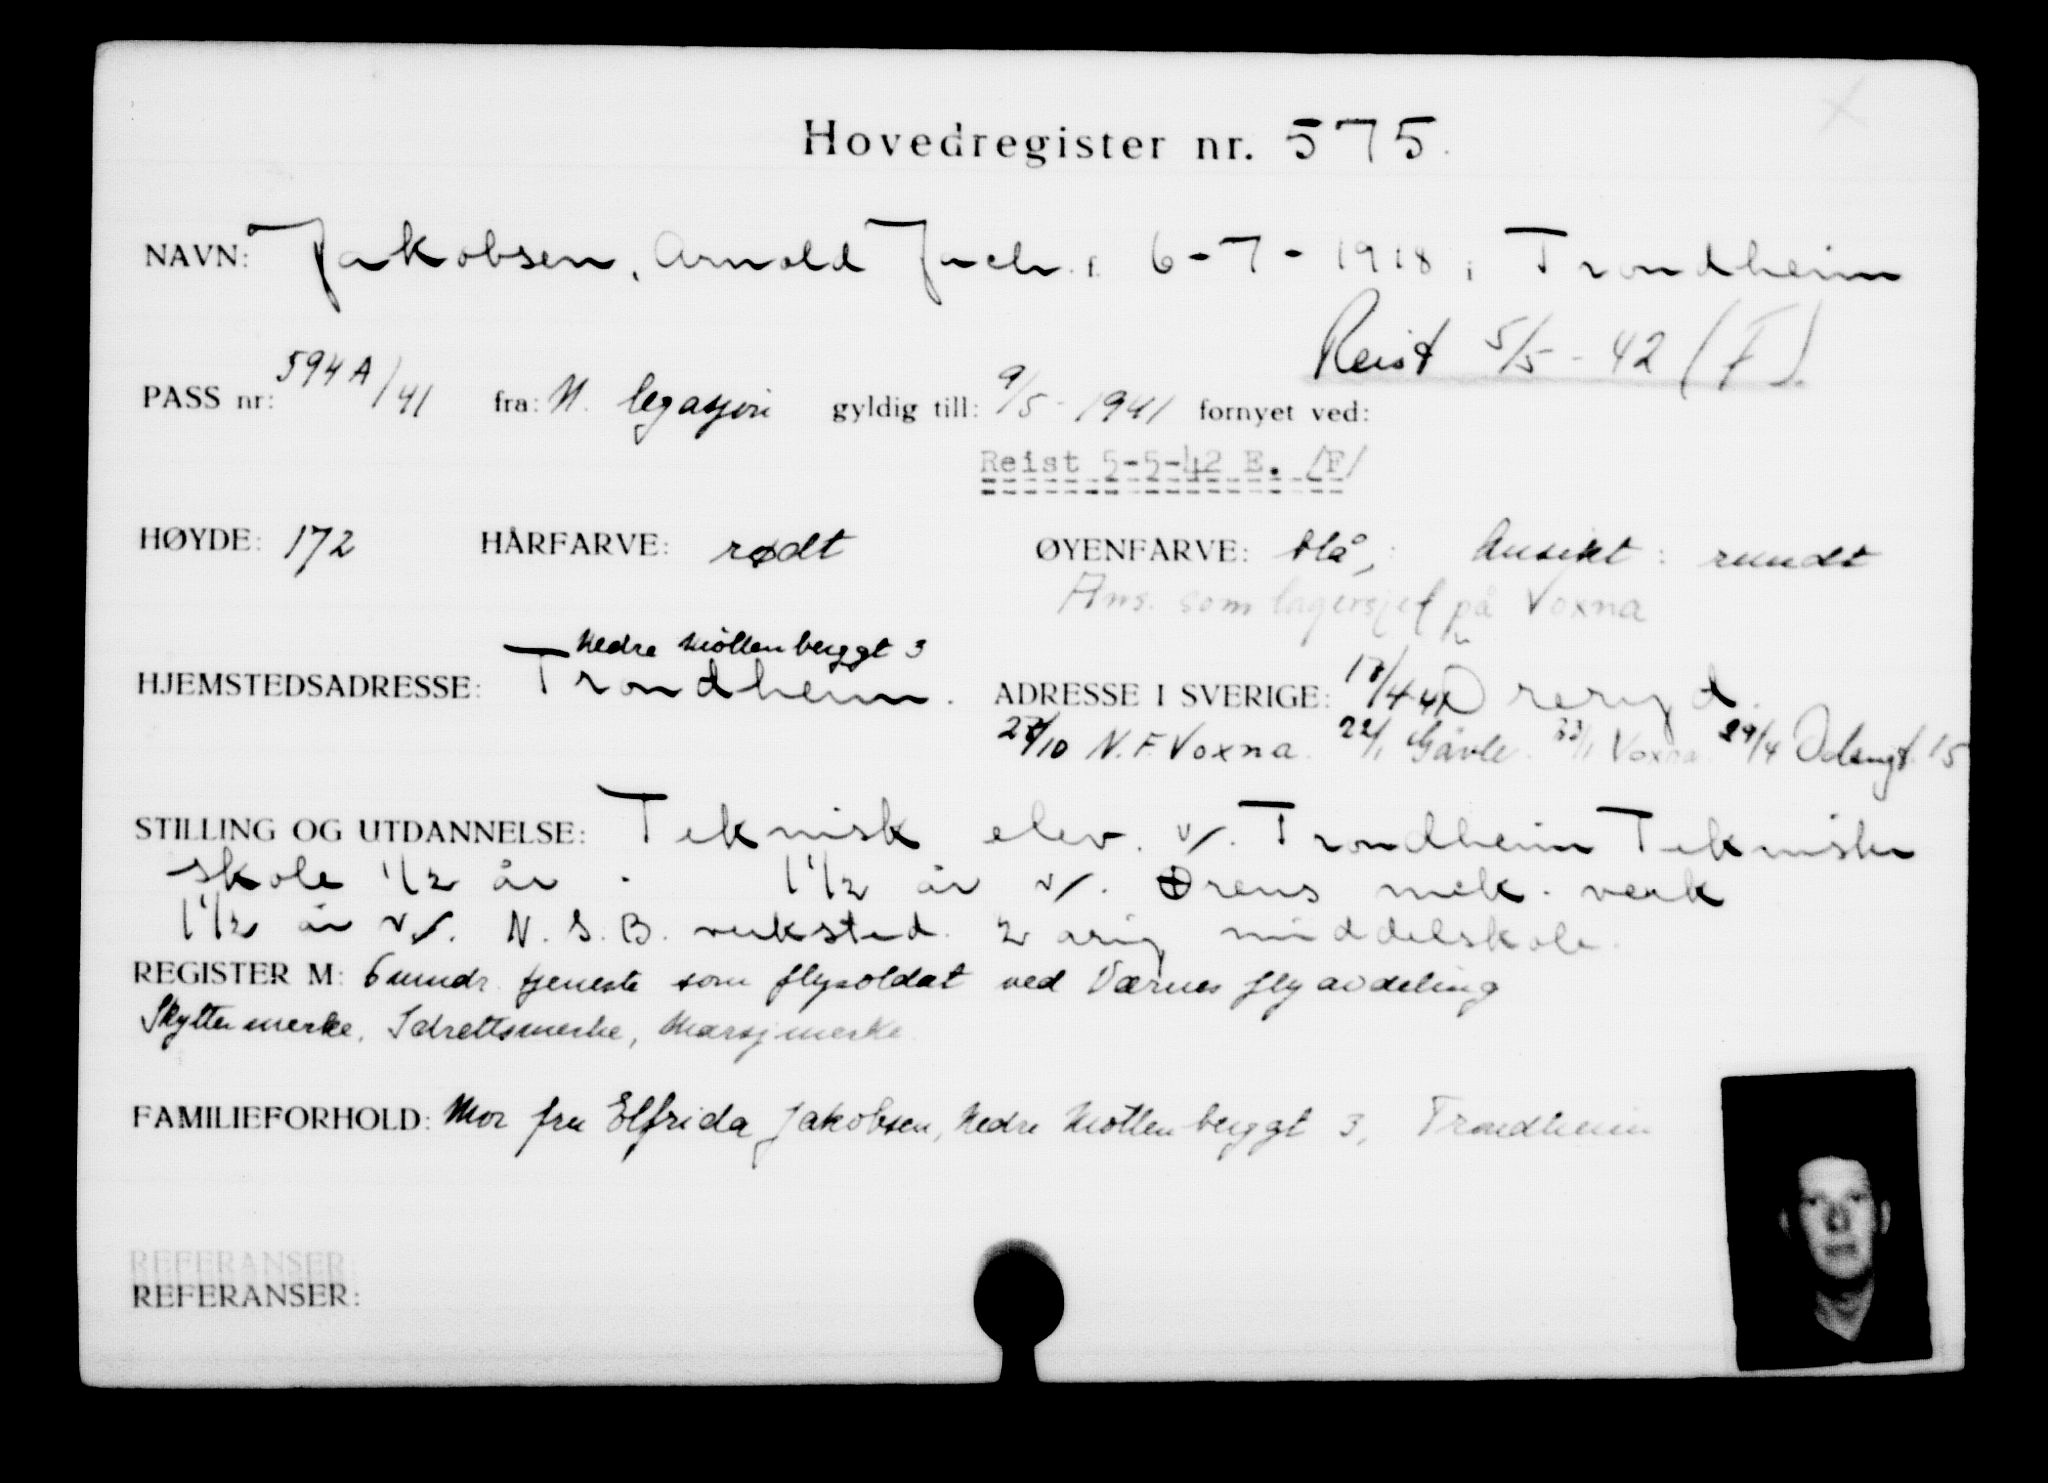 Hovedregister nr. 575.
NAVN: Jakobsen, Arnold f. 6-7-1918 i Trondheim
Reist 5/5-42 (F).
PASS nr: 594A/41 fra: N. legasjon gyldig till: 9/5-1941 fornyet ved:
Reist 5-5-42 E. /F/
HØYDE: 172 HÅRFARVE: rødt ØYENFARVE: blå, Ansikt: rundt
Ans. som lagersjef på Voxna
Nedre Möllenberggt 3
HJEMSTEDSADRESSE: Trondheim. ADRESSE I SVERIGE: Öreryd.
N.F. Voxna. 22/1 Gävle. 23/1 Voxna. 29/4 Odengt. 15
STILLING OG UTDANNELSE: Teknisk elev. v/. Trondheim Tekniske
skole 1/2 år. 1 1/2 år v/. Ørens mek. verk
1 1/2 år v/. N.S.B. verksted. 2 årig middelskole.
REGISTER M: 6 mndr. tjeneste som flysoldat ved Værnes flyavdeling
Skyttermerke, Idrettsmerke, Marsjmerke
FAMILIEFORHOLD: Mor fru Elfrida Jakobsen, Nedre Möllenberggt 3, Trondheim
REFERANSER:
REFERANSER: